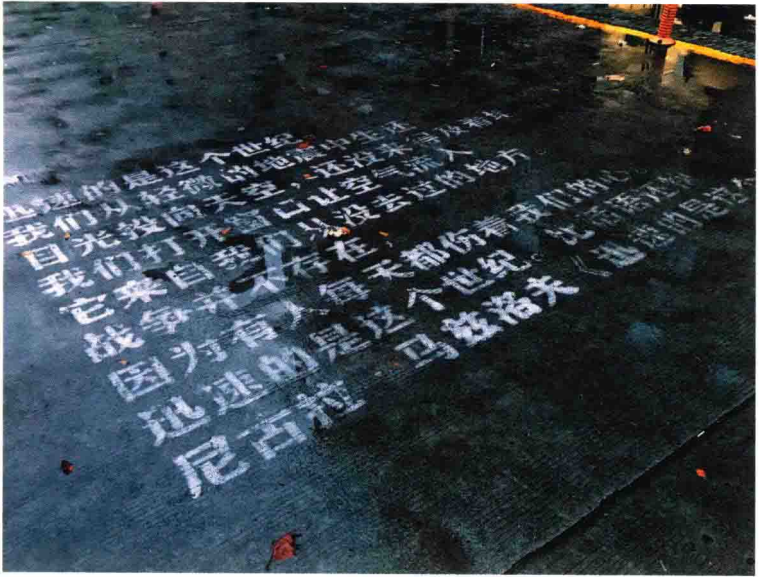 迅速的是这个世纪
我们从轻微的地震中生还
目光投向天空，还没来
我们打开窗口让空气流入
它来自我们从没去过的地方
战争并不存在，
因为有人每天都伤着我们的心
迅速的是这个世纪。比
尼古拉·马兹洛夫《迅速的是这个